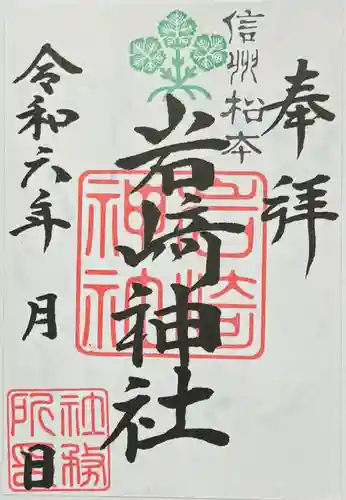 奉拝
信州松本
岩崎神社
岩崎神社
令和六年 月 日
社務所